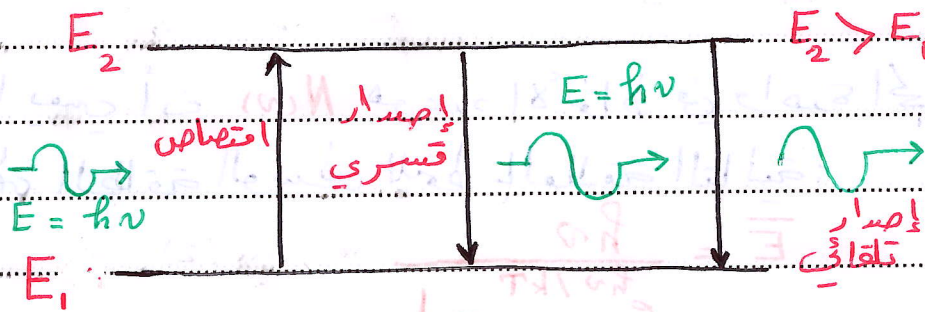 E₂
E₂ > E₁
امتصاص
إصدار
قسري
E = hν
E = hν
إصدار
تلقائي
E₁